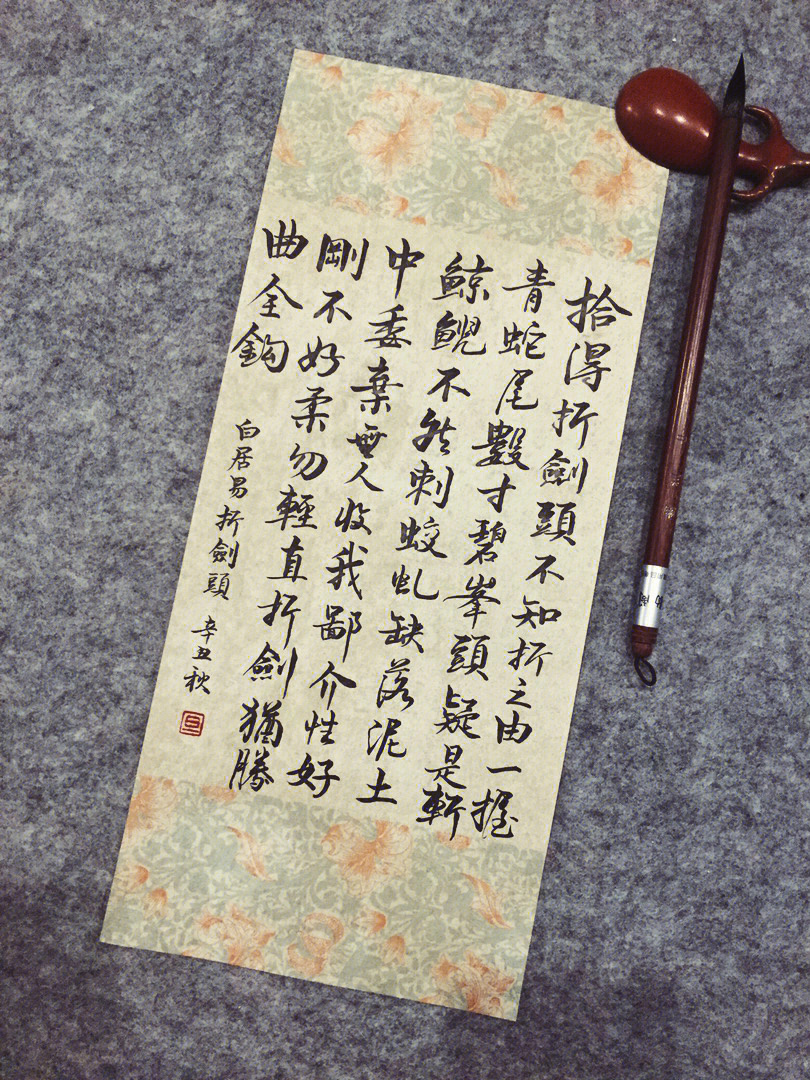 拾得折劍頭不知折之由一握
青蛇尾數寸碧峯頭疑是斬
鯨鯢不然刺蛟虬缺落泥土
中委棄無人收我鄙介性好
剛不好柔勿輕直折劍猶勝
曲全鈎
白居易折劍頭 辛丑秋